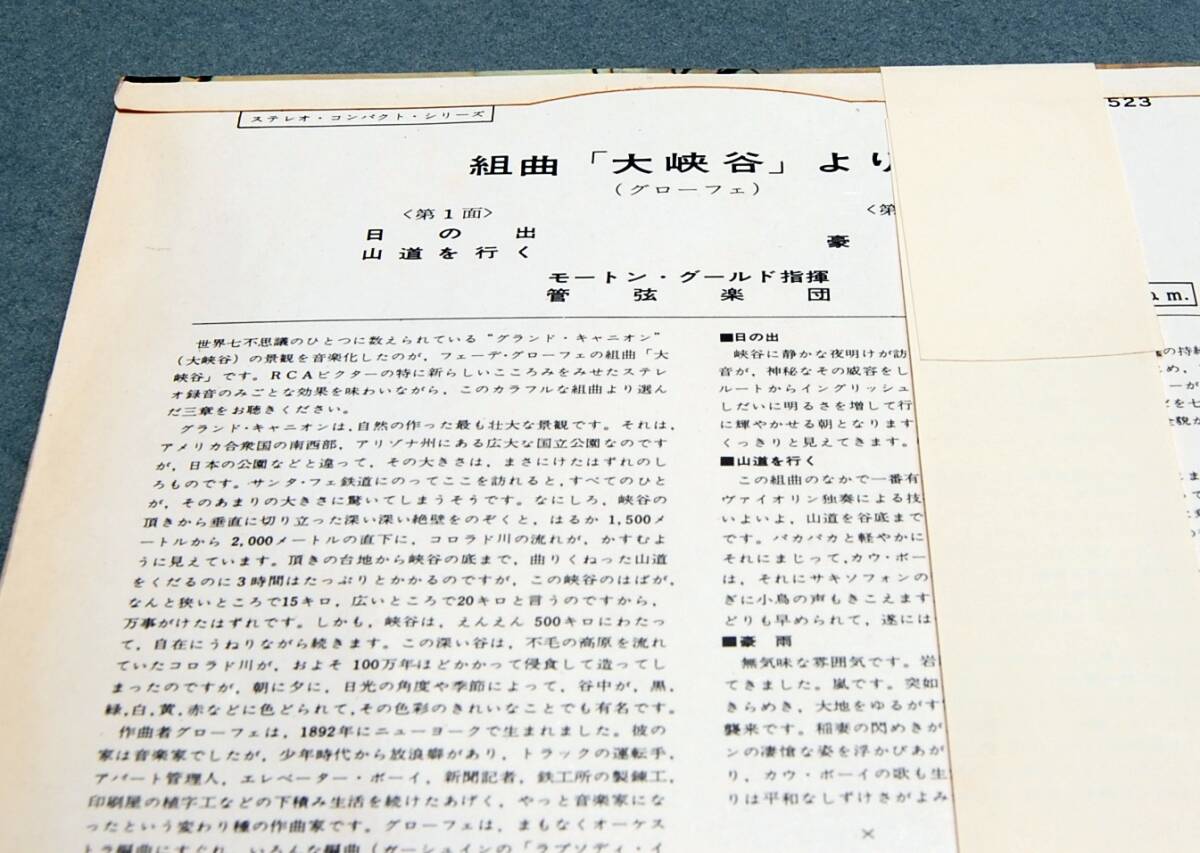 ステレオ・コンパクト・シリーズ
523
組曲「大峡谷」より
(グローフェ)
<第1面>
日の出
山道を行く
<第
豪
モートン・グールド指揮
管弦楽団
am.
世界七不思議のひとつに数えられている“グランド・キャニオン”
(大峡谷)の景観を音楽化したのが,フェーデ・グローフェの組曲「大
峡谷」です。RCAビクターの特に新らしいこころみをみせたステレ
オ録音のみごとな効果を味わいながら,このカラフルな組曲より選ん
だ三章をお聴きください。
グランド・キャニオンは,自然の作った最も壮大な景観です。それは,
アメリカ合衆国の南西部,アリゾナ州にある広大な国立公園なのです
が,日本の公園などと違って,その大きさは,まさにけたはずれのし
ろものです。サンタ・フェ鉄道にのってここを訪れると,すべてのひと
が,そのあまりの大きさに驚いてしまうそうです。なにしろ,峡谷の
頂きから垂直に切り立った深い深い絶壁をのぞくと,はるか 1,500メ
ートルから 2,000メートルの直下に,コロラド川の流れが,かすむよ
うに見えています。頂きの台地から峡谷の底まで,曲りくねった山道
をくだるのに3時間はたっぷりとかかるのですが,この峡谷のはばが,
なんと狭いところで15キロ,広いところで20キロと言うのですから,
万事がけたはずれです。しかも,峡谷は,えんえん 500キロにわたっ
て,自在にうねりながら続きます。この深い谷は,不毛の高原を流れ
ていたコロラド川が,およそ 100万年ほどかかって侵食して造ってし
まったのですが,朝に夕に,日光の角度や季節によって,谷中が,黒,
緑,白,黄,赤などに色どられて,その色彩のきれいなことでも有名です。
作曲者グローフェは,1892年にニューヨークで生まれました。彼の
家は音楽家でしたが,少年時代から放浪癖があり,トラックの運転手,
アパート管理人,エレベーター・ボーイ,新聞記者,鉄工所の製錬工,
印刷屋の植字工などの下積み生活を続けたあげく,やっと音楽家にな
ったという変わり種の作曲家です。グローフェは,まもなくオーケス
トラ編曲にすぐれ,いろんな編曲(ガーシュインの「ラプソディ・イ
■日の出
峡谷に静かな夜明けが訪
音が,神秘なその威容をし
ルートからイングリッシュ
しだいに明るさを増して行
に輝やかせる朝となります
くっきりと見えてきます。
■山道を行く
この組曲のなかで一番有
ヴァイオリン独奏による技
いよいよ,山道を谷底まで
です。パカパカと軽やかに
それにまじって,カウ・ボー
は,それにサキソフォンの
ぎに小鳥の声もきこえます
どりも早められて,遂には
■豪 雨
無気味な雰囲気です。岩
てきました。嵐です。突如
きらめき,大地をゆるがす
襲来です。稲妻の閃めきが
ンの凄愴な姿を浮かびあが
り,カウ・ボーイの歌も生
りは平和なしずけさがよみ
×